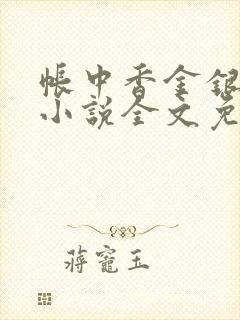 帳中香金銀
小說全文免
蔣寵玉